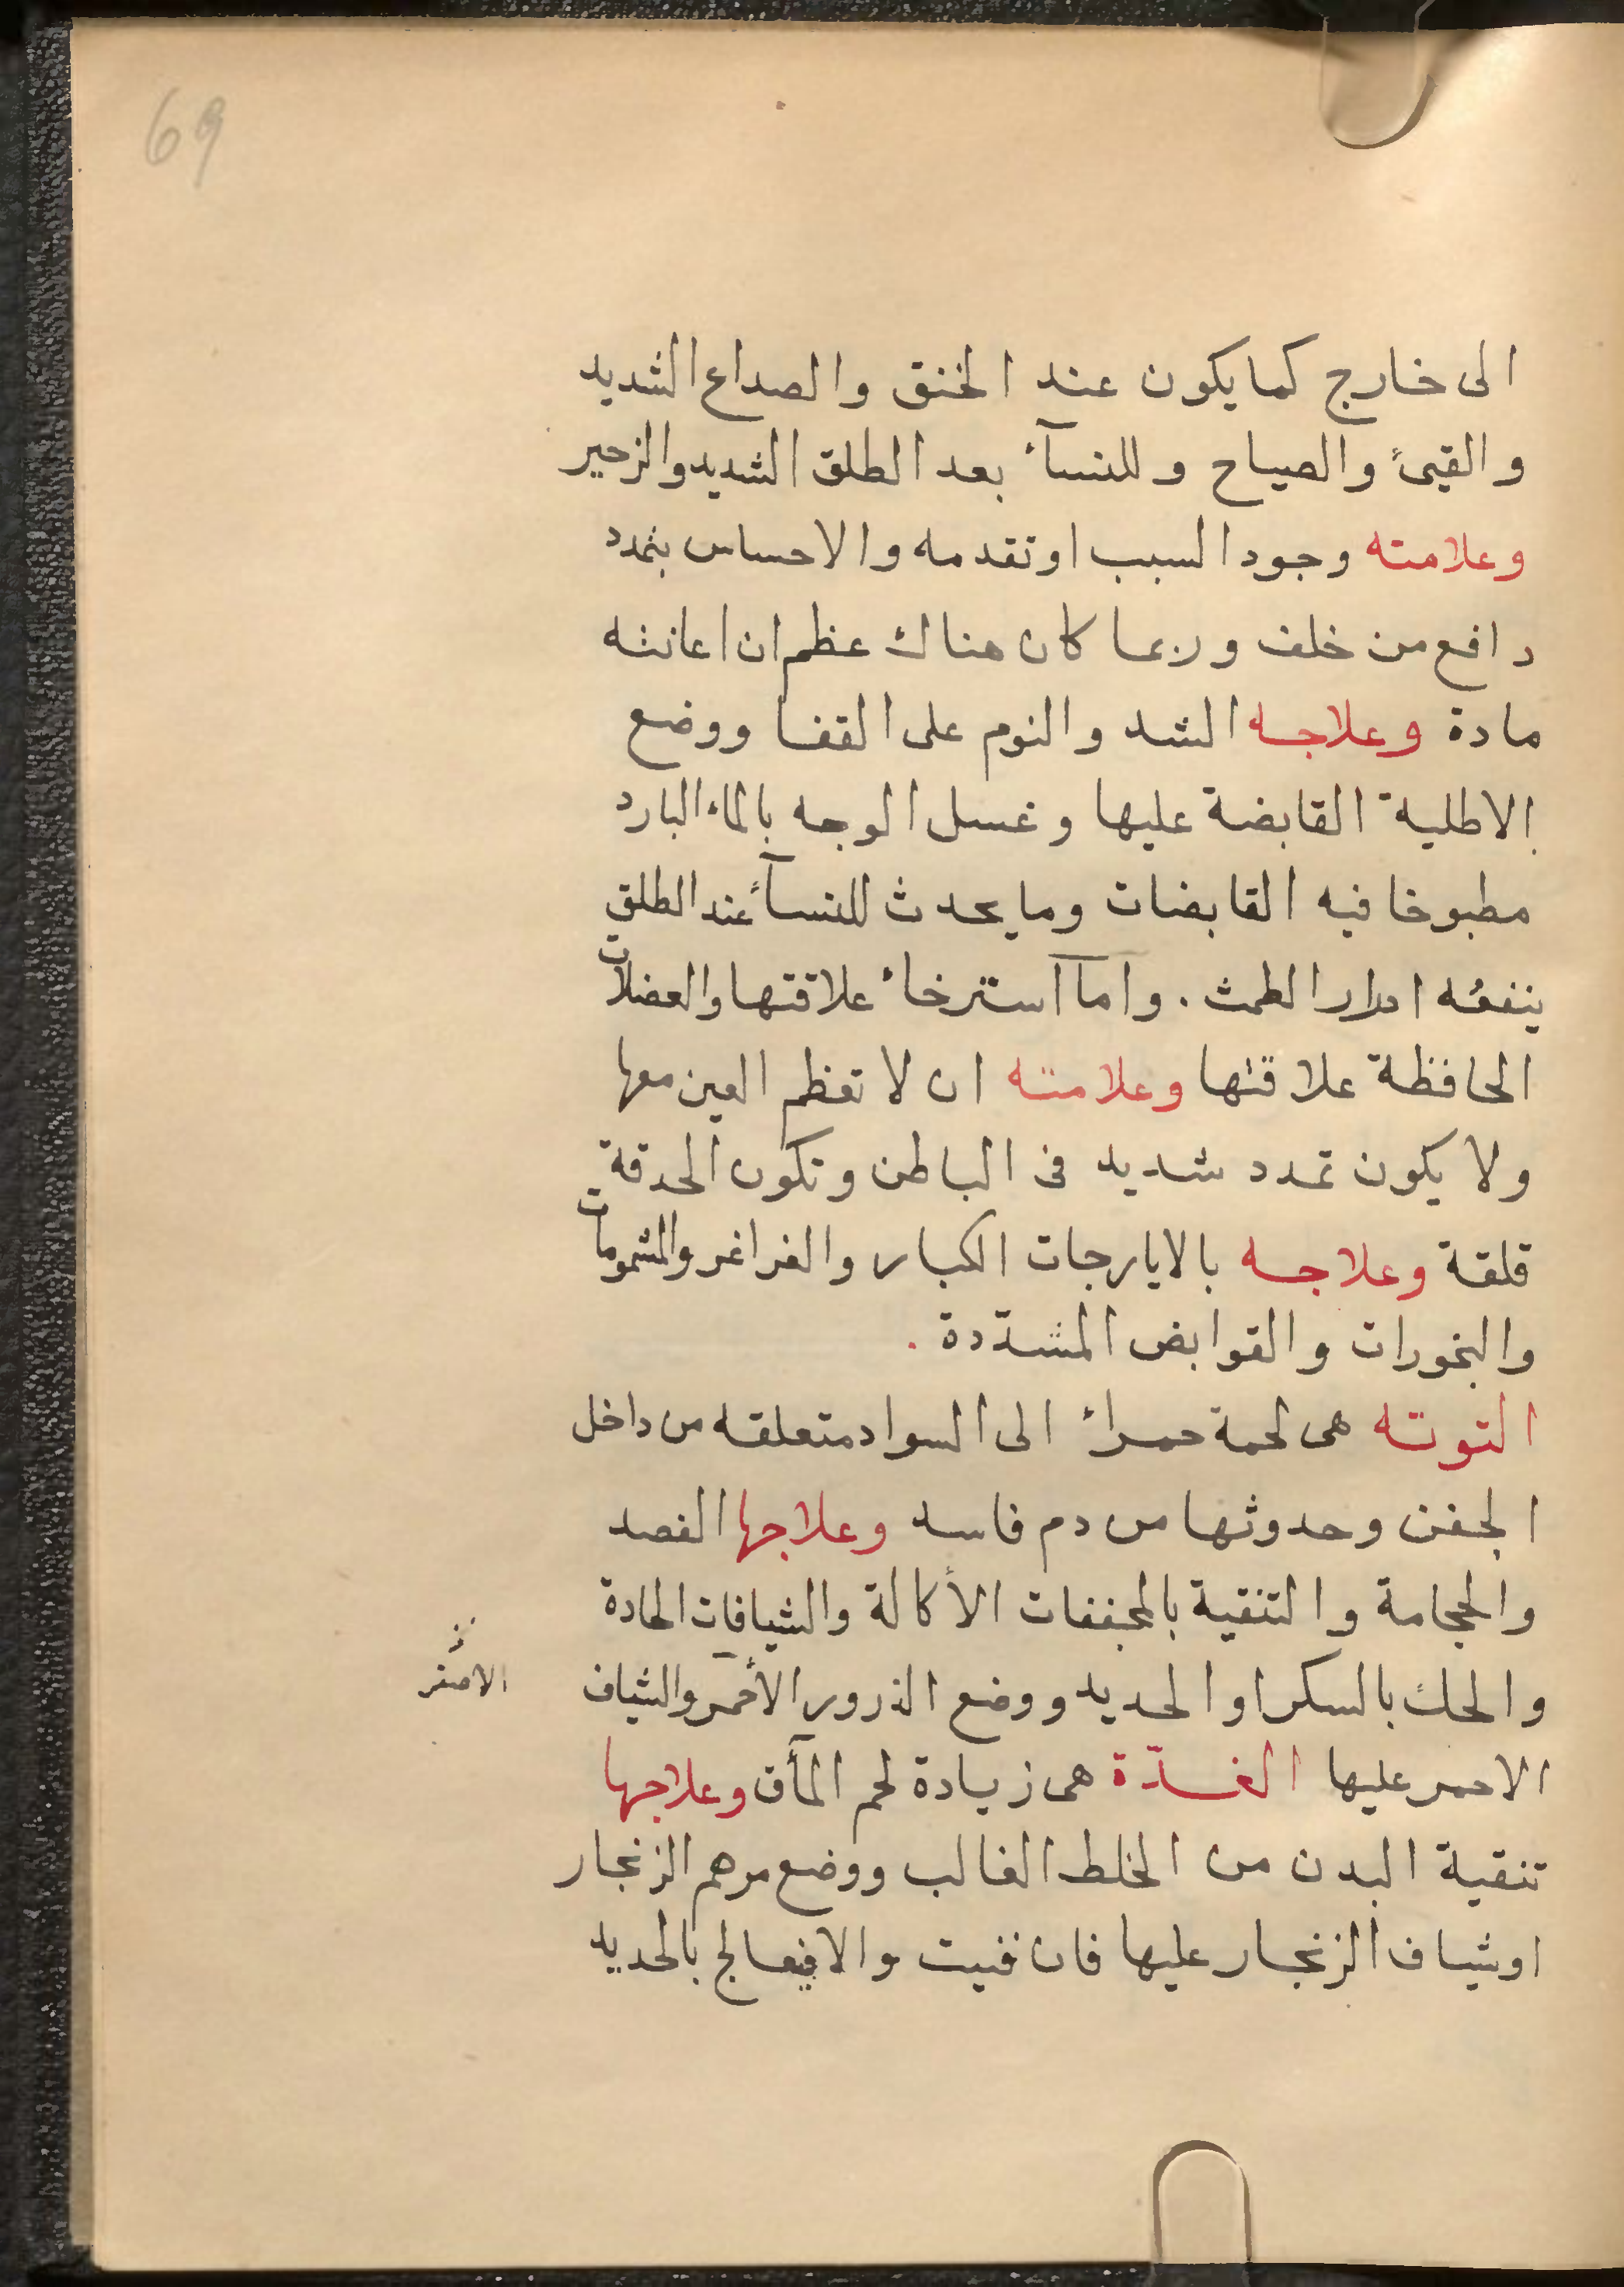 69
الى خارج كما يكون عند الخنق والصداع الشديد
والقئ والصياح وللنسآء بعد الطلق الشديد والزحير
وعلامته وجود السبب او تقدمه والاحساس بتمدد
دافع من خلف وربما كان هناك عظم ان اعانته
مادة وعلاجه الشد والنوم على القفا ووضع
الاطلية القابضة عليها وغسل الوجه بالماء البارد
مطبوخا فيه القابضات وما يحدث للنسآء عند الطلق
ينفعه ادرار الطمث . واما آسترخاء علاقتها والعضلات
الحافظة علاقتها وعلامته ان لا تعظم العين معها
ولا يكون تمدد شديد فى الباطن وتكون الحدقة
قلقة وعلاجه بالايارجات الكبار والغراغر والمشمومات
والبخورات والقوابض المشدّدة .
التوته هى لحمة حمراء الى السواد متعلقه من داخل
الجفن وحدوثها من دم فاسد وعلاجها الفصد
والحجامة والتنقية بالمجففات الأكالة والشيافات الحادة
والحك بالسكر او الحديد ووضع الذرور الأحمر والشياف
الاصفر
الاحمر عليها الغدّة هى زيادة لحم المآق وعلاجها
تنقية البدن من الخلط الغالب ووضع مرهم الزنجار
او شياف الزنجار عليها فان فنيت والا فيعالج بالحديد